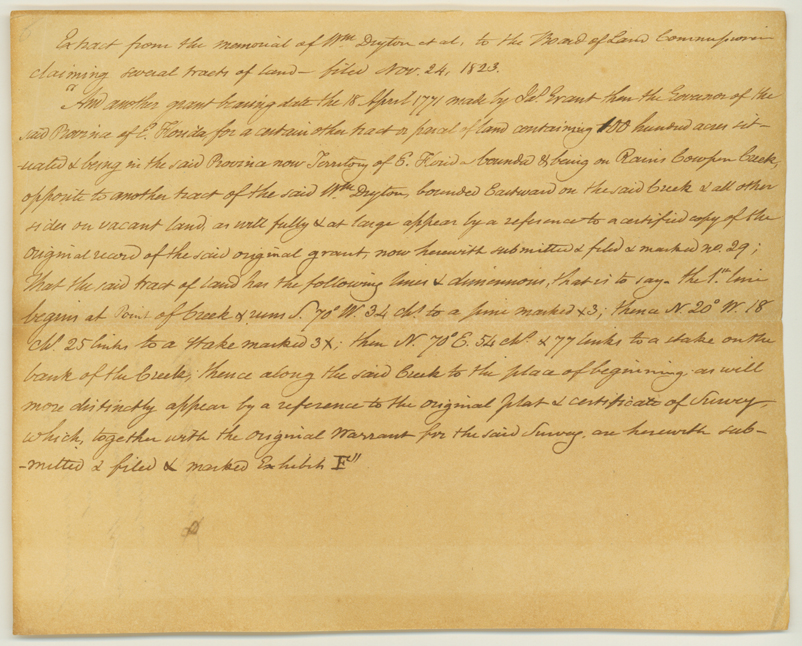 Extract from the memorial of Wm. Dryton et al, to the Board of Land Commissioners
claiming several tracts of land – filed Nov. 24, 1823.
"And another grant bearing date the 18 April 1771 made by Jas. Grant then the Governor of the
said Province of E. Florida for a certain other tract or parcel of land containing 100 hundred acres sit-
uated & being in the said Province now Territory of E. Florida bounded & being on Rains Cowpen Creek,
opposite to another tract of the said Wm. Dryton, bounded Eastward on the said Creek & all other
sides on vacant land, as will fully & at large appear by a reference to a certified copy of the
original record of the said original grant, now herewith submitted & filed & marked no. 29;
That the said tract of land has the following lines & dimensions, that is to say – the 1st. line
begins at Point of Creek & runs S. 70° W. 34 chs. to a pine marked x3; thence N. 20° W. 18
chs. 25 links to a stake marked 3x; then N. 70° E. 54 chs. & 77 links to a stake on the
bank of the Creek, thence along the said Creek to the place of beginning, as will
more distinctly appear by a reference to the original plat & certificate of Survey,
which, together with the original warrant for the said Survey, are herewith sub-
-mitted & filed & marked Exhibit F"